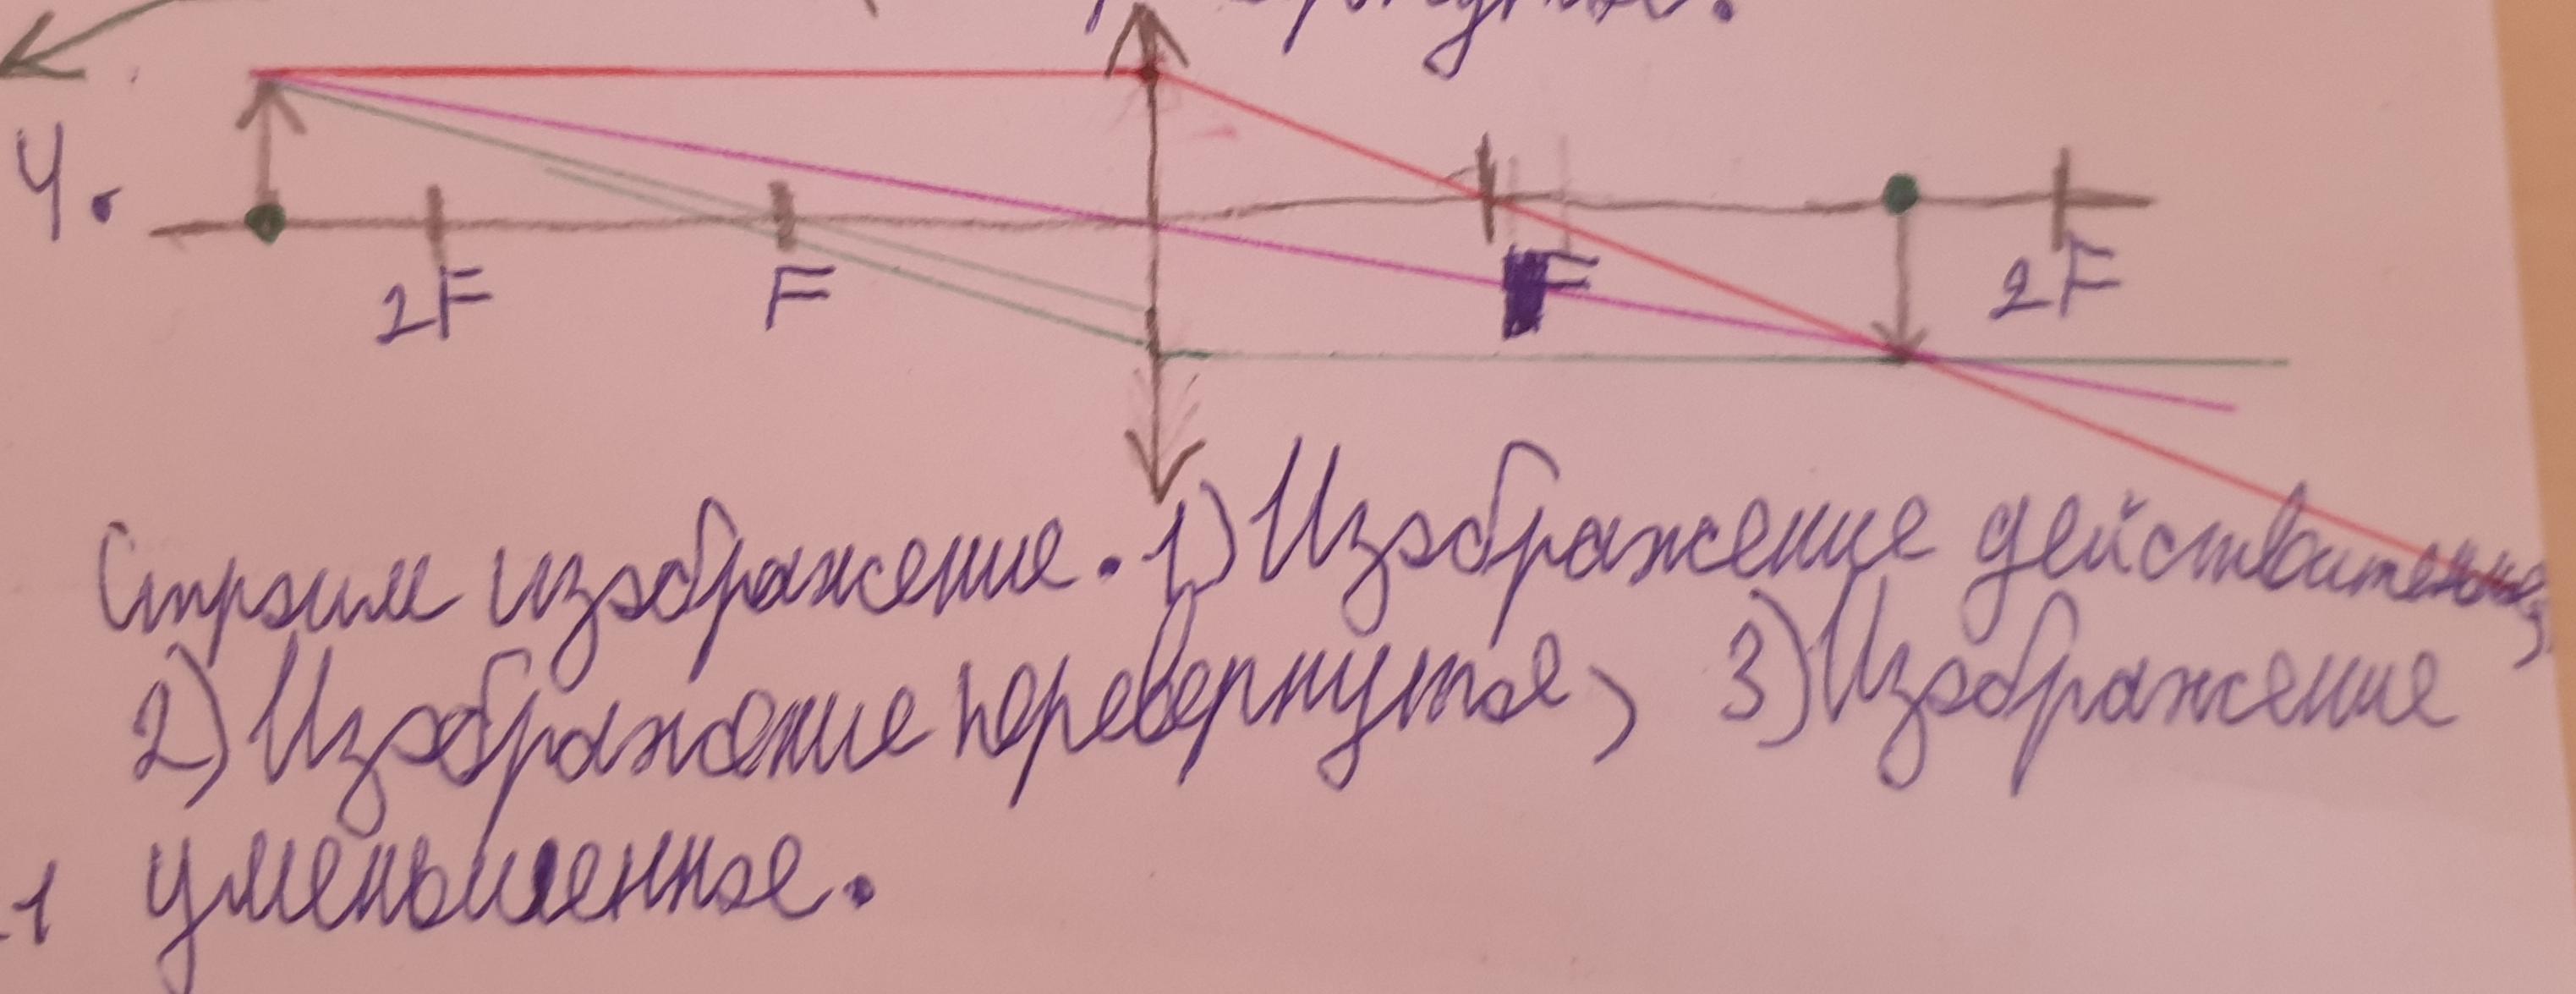 4.
2F F F 2F
Строим изображение. 1) Изображение действительное,
2) Изображение перевернутое, 3) Изображение
уменьшенное.